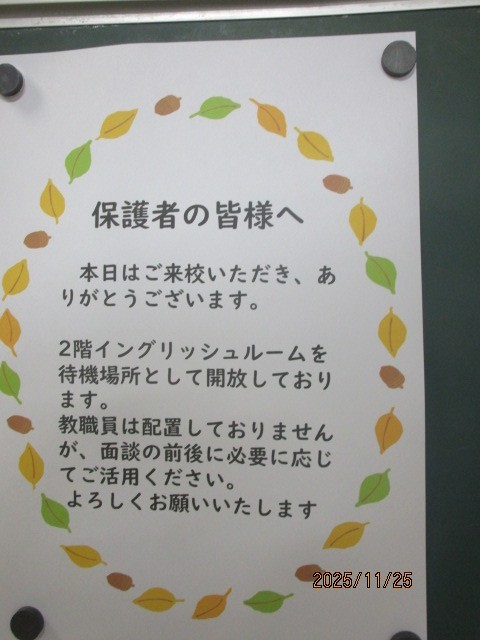 保護者の皆様へ
　本日はご来校いただき、あ
りがとうございます。
2階イングリッシュルームを
待機場所として開放しており
ます。
教職員は配置しておりません
が、面談の前後に必要に応じ
てご活用ください。
よろしくお願いいたします
2025/11/25